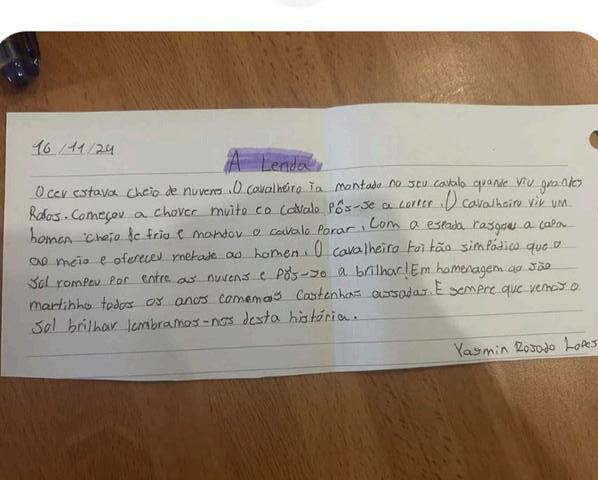 16/11/24
A Lenda
O ceu estava cheio de nuvens. O cavalheiro ia montado no seu cavalo quande viu grandes
Raios. Começou a chover muito e o cavalo Pôs-se a correr. O cavalheiro viu um
homen cheio de frio e mandou o cavalo Parar. Com a espada rasgou a capa
ao meio e ofereceu metade ao homen. O cavalheiro foi tão simpático que o
sol rompeu Por entre as nuvens e Pôs-so a brilhar! Em homenagem ao São
martinho todos os anos comemos Castenhas assadas. E sempre que vemos o
sol brilhar lembramos-nos desta história.
Yasmin Rosado Lopes